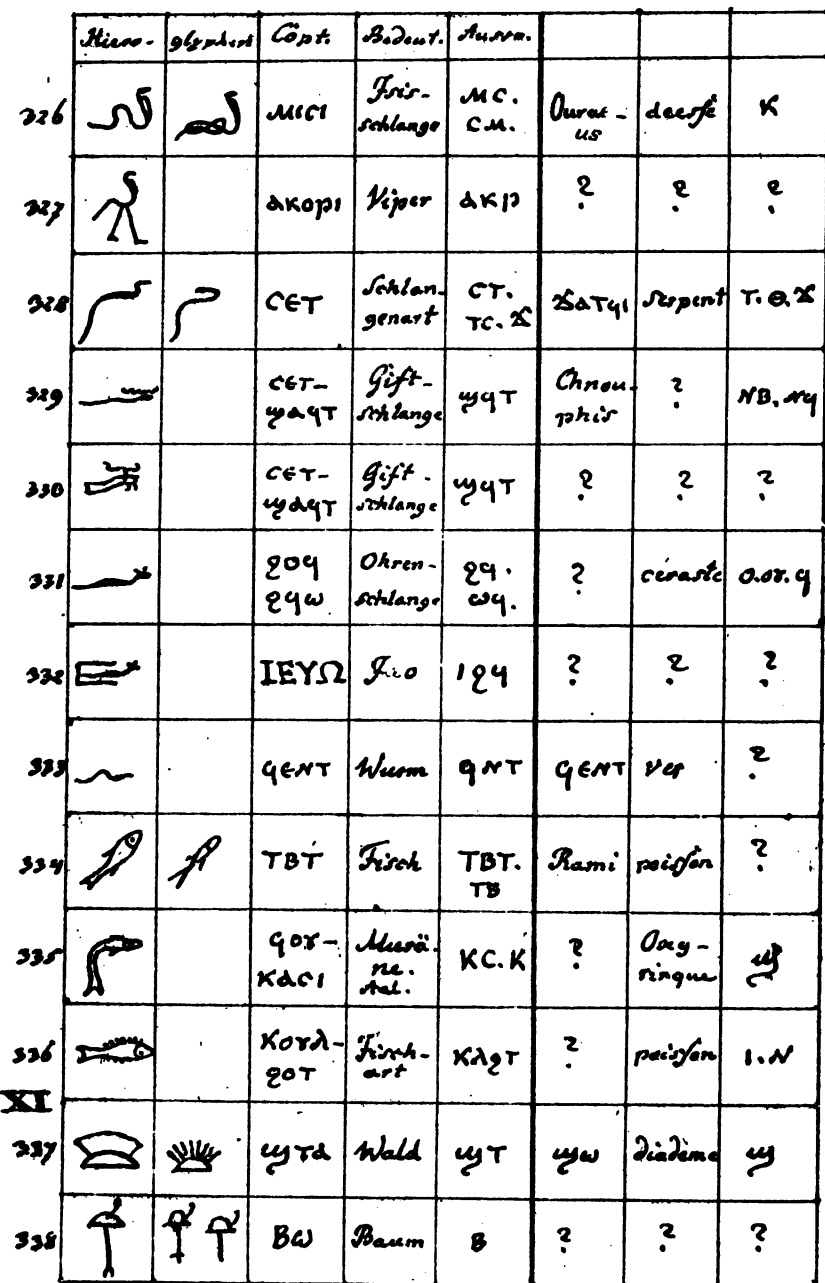 Hiero- glyphen Copt. Bedeut. Ausspr.
326 ⲙⲓⲥⲓ Isis-schlange ⲙⲥ. ⲥⲙ. Ourae-us deesse K
327 ⲁⲕⲟⲣⲓ Viper ⲁⲕⲣ ? ? ?
328 ⲥⲉⲧ Schlan-genart ⲥⲧ. ⲧⲥ. ϫ ϫⲁⲧϥⲓ serpent ⲧ. ⲑ. ϫ
329 ⲥⲉⲧ-ϣⲁϥⲧ Gift-schlange ϣϥⲧ Chnou-phis ? ⲛⲃ. ⲛϥ
330 ⲥⲉⲧ-ϣⲁϥⲧ Gift-schlange ϣϥⲧ ? ? ?
331 ϩⲟϥ ϩϥⲱ Ohren-schlange ϩϥ. ⲱϥ. ? céraste ⲟ.ⲟⲩ.ϥ
332 ΙΕΥΩ ⲓϩϥ ? ? ?
333 ϥⲉⲛⲧ Wurm ϥⲛⲧ ϥⲉⲛⲧ ver ?
334 ⲧⲃⲧ Fisch ⲧⲃⲧ. ⲧⲃ Rami poisson ?
335 ϥⲟⲩ-ⲕⲁⲥⲓ Murä-ne. Aal. ⲕⲥ.ⲕ ? Oxy-rinque ϣ
336 ⲕⲟⲩⲗ-ϩⲟⲧ Fisch-art ⲕⲗϩⲧ ? poisson ⲓ.ⲛ
XI
337 ϣⲧⲁ Wald ϣⲧ ϣⲱ diadème ϣ
338 ⲃⲱ Baum ⲃ ? ? ?